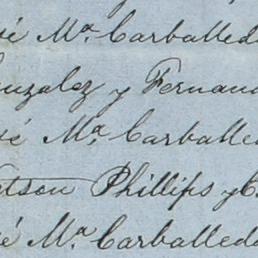 sé Mª Carballedo
Gonzalez y Fernand
sé Mª Carballed
Watson Phillips y C
sé Mª Carballedo